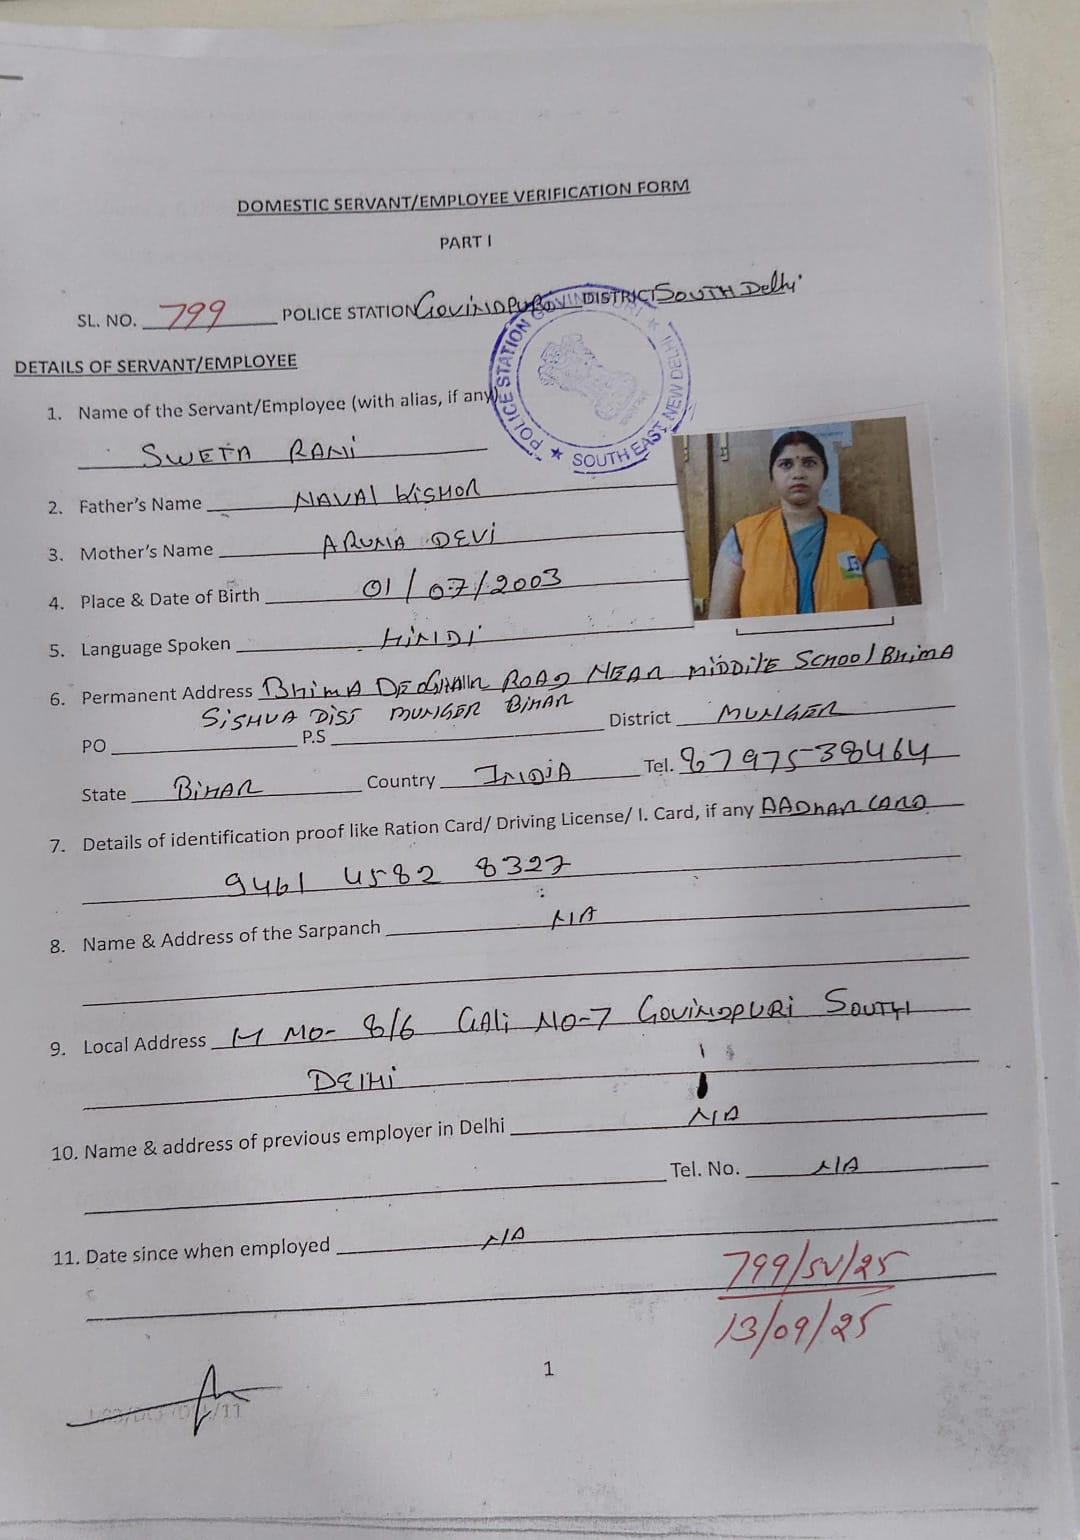 DOMESTIC SERVANT/EMPLOYEE VERIFICATION FORM
PART I
SL. NO. 799 POLICE STATION GOVINDPURI DISTRICT SOUTH Delhi
POLICE STATION GOVINDPURI ★ SOUTH EAST, NEW DELHI ★
DETAILS OF SERVANT/EMPLOYEE
1. Name of the Servant/Employee (with alias, if any)
SWETA RANI
2. Father's Name NAVAl KiSHOR
3. Mother's Name ARUNA DEVi
4. Place & Date of Birth 01/07/2003
5. Language Spoken HiNDi
6. Permanent Address BhimA ROAD NEAR MiDDilE SCHOOl BhimA
SiSHUA DiST MUNGER BiHAR
PO P.S District MUNGER
State BiHAR Country INDiA Tel. 8797538464
7. Details of identification proof like Ration Card/ Driving License/ I. Card, if any AADHAR CARD
9461 4582 8327
8. Name & Address of the Sarpanch N/A
9. Local Address H NO- 8/6 GAli NO-7 GOViNDPURi SOUTH
DElHi
10. Name & address of previous employer in Delhi N/A
Tel. No. N/A
11. Date since when employed N/A
799/SV/25
13/09/25
1